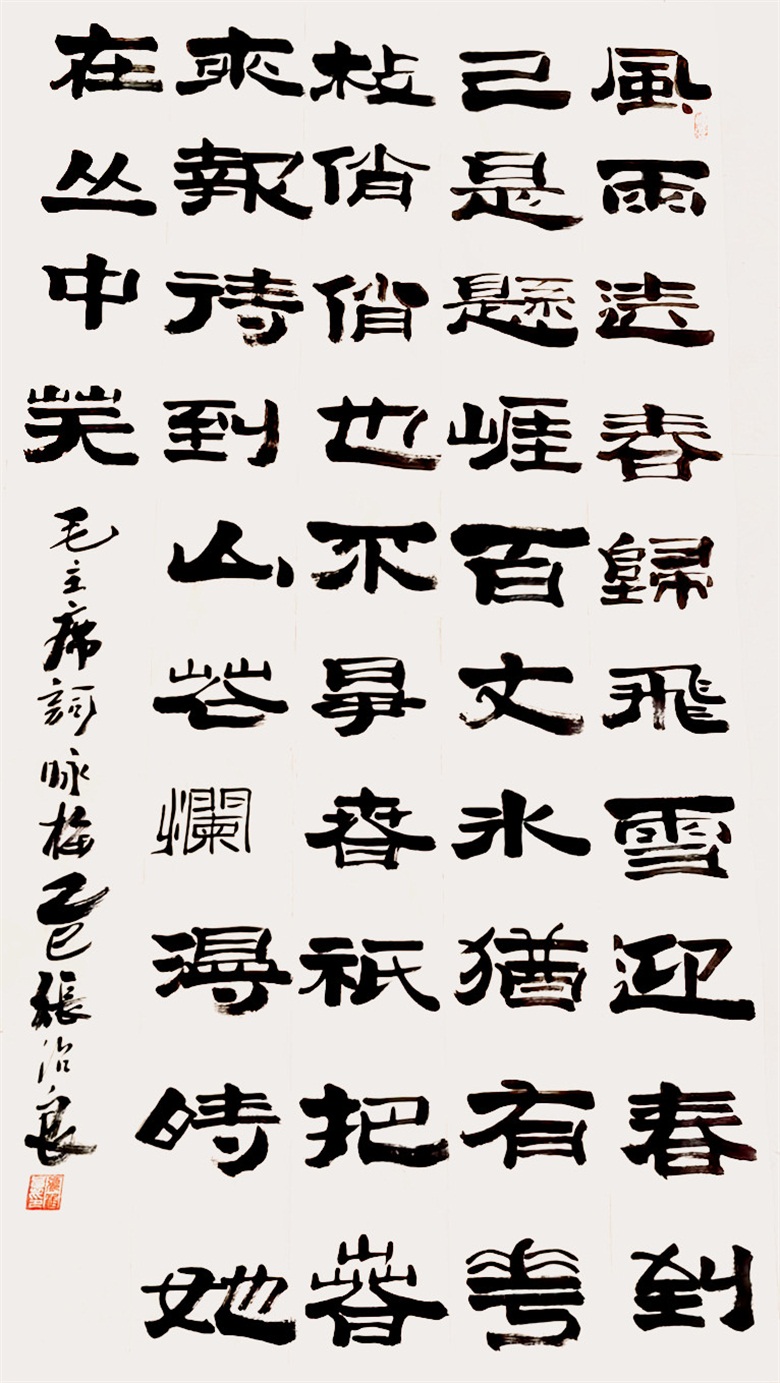 風雨送春歸飛雪迎春到
已是懸崖百丈冰猶有花
枝俏俏也不爭春祇把春
來報待到山花爛漫時她
在丛中笑
毛主席詞咏梅乙巳張治良